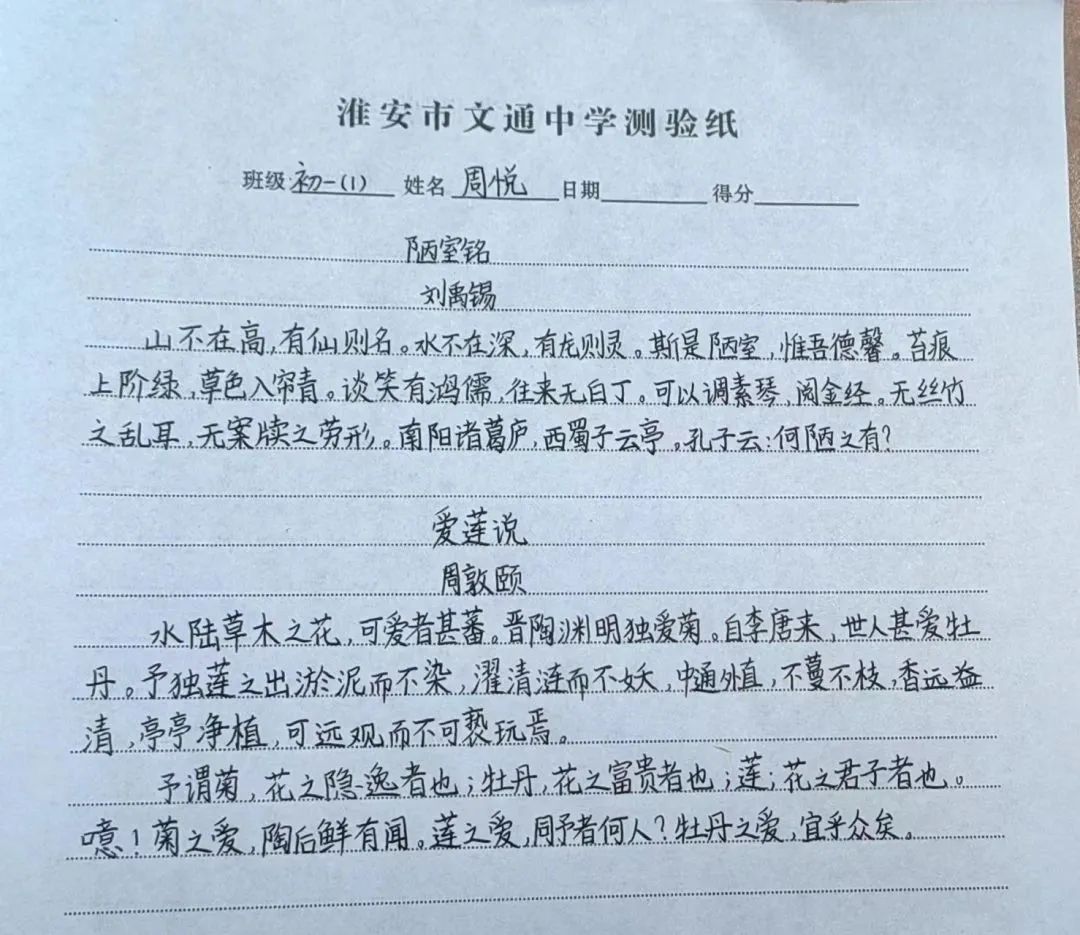 淮安市文通中学测验纸
班级 初一(1) 姓名 周悦 日期 得分
陋室铭
刘禹锡
山不在高,有仙则名。水不在深,有龙则灵。斯是陋室,惟吾德馨。苔痕
上阶绿,草色入帘青。谈笑有鸿儒,往来无白丁。可以调素琴,阅金经。无丝竹
之乱耳,无案牍之劳形。南阳诸葛庐,西蜀子云亭。孔子云:何陋之有?
爱莲说
周敦颐
水陆草木之花,可爱者甚蕃。晋陶渊明独爱菊。自李唐来,世人甚爱牡
丹。予独莲之出淤泥而不染,濯清涟而不妖,中通外直,不蔓不枝,香远益
清,亭亭净植,可远观而不可亵玩焉。
予谓菊,花之隐逸者也;牡丹,花之富贵者也;莲;花之君子者也。
噫!菊之爱,陶后鲜有闻。莲之爱,同予者何人?牡丹之爱,宜乎众矣。